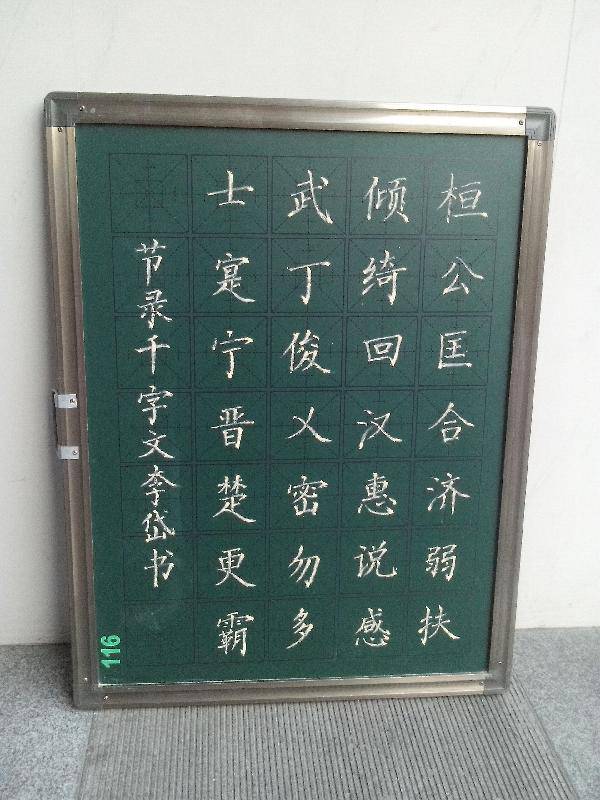 桓公匡合济弱扶
倾绮回汉惠说感
武丁俊乂密勿多
士寔宁晋楚更霸
节录千字文李岱书
116